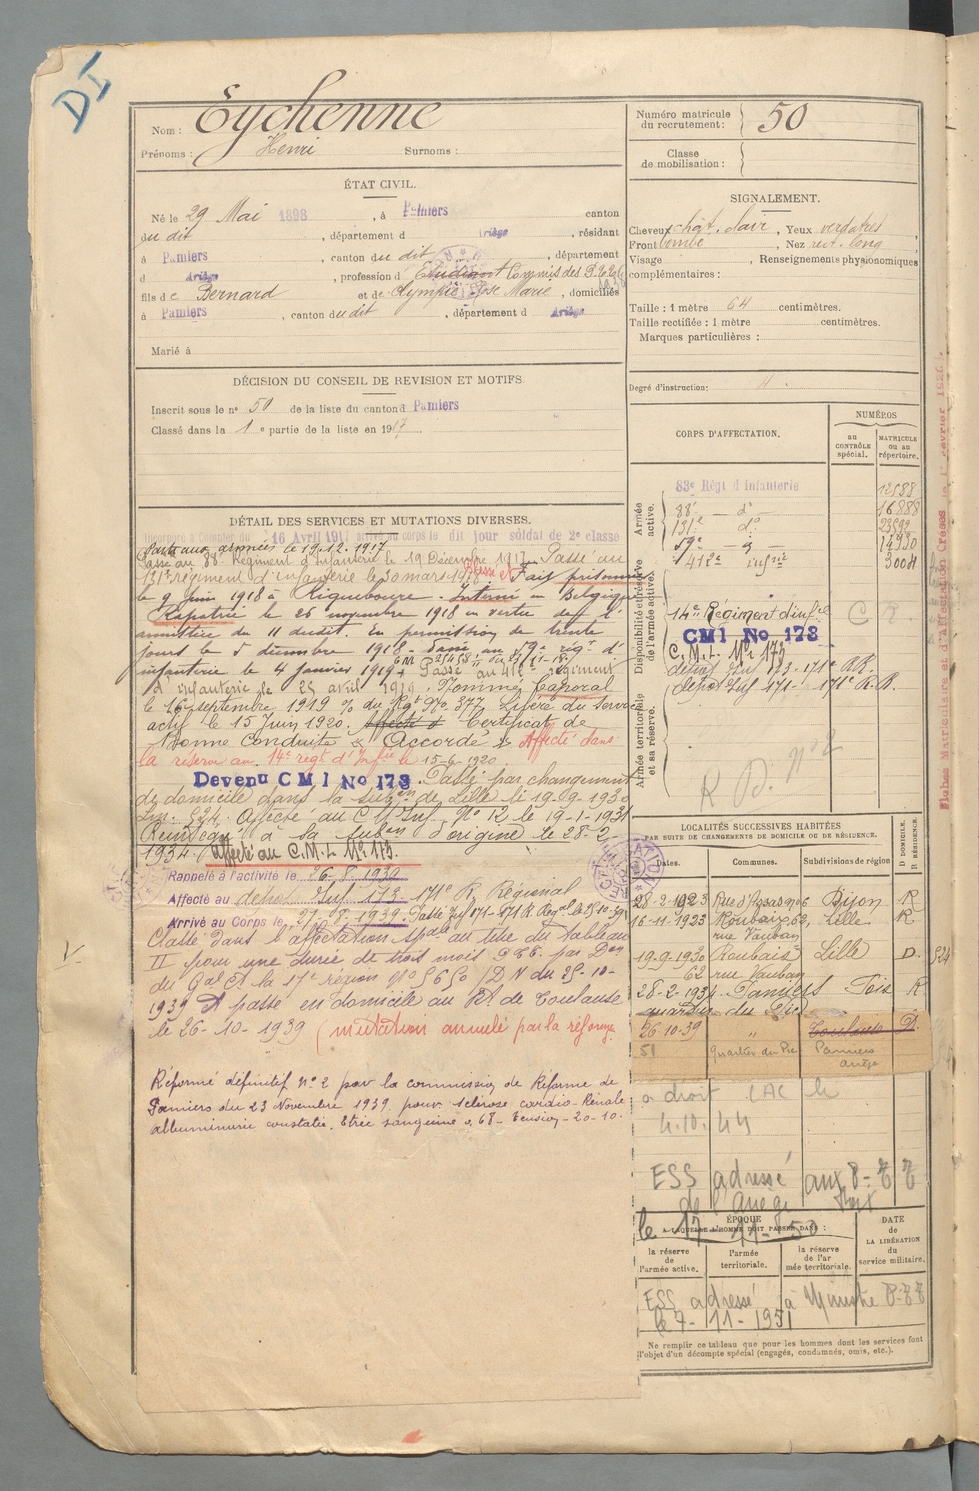 DI
Nom : Eychenne
Prénoms : Henri Surnoms :
ÉTAT CIVIL.
Né le 29 Mai 1898, à Pamiers canton
du dit, département d Ariège, résidant
à Pamiers, canton du dit, département
d Ariège, profession d Etudiant Commis des P.T.T.
fils de Bernard et de Olympie Rose Marie, domiciliés
à Pamiers, canton du dit, département d Ariège
Marié à
DÉCISION DU CONSEIL DE REVISION ET MOTIFS
Inscrit sous le n° 50 de la liste du canton d Pamiers
Classé dans la 1e partie de la liste en 1917.
DÉTAIL DES SERVICES ET MUTATIONS DIVERSES.
Incorporé à compter du 16 Avril 1917 arrivé au corps le dit jour soldat de 2e classe
Parti aux armées le 19.12.1917
Passé au 88e Régiment d'Infanterie le 19 Décembre 1917. Passé au
131e régiment d'infanterie le 30 mars 1918. Blessé et Fait prisonnier
le 9 Juin 1918 à Ricquebourg. Interné en Belgique
Rapatrié le 26 novembre 1918 en vertu de l'
armistice du 11 dudit. En permission de trente
jours le 5 décembre 1918. Passé au 59e rég. d'
infanterie le 4 janvier 1919. Passé au 412e régiment
d'infanterie le 25 avril 1919. Nommé Caporal
le 16 septembre 1919 % du Rgt No 377. Libéré du service
actif le 15 Juin 1920. Affecté d Certificat de
Bonne Conduite "Accordé" Affecté dans
la réserve au 14e régt d'Infie le 15-6-1920
Devenu CMI No 173. Passé par changement
de domicile dans la subon de Lille le 19-9-1930
Affecté au C.M. Inf. No 12 le 19-1-1931
Réintégré à sa subon d'origine le 28-2-
1934. Affecté au C.M.I. No 173.
Rappelé à l'activité le 26-8-1939
Affecté au dépôt Inf 173 171e R. Régional
Arrivé au Corps le 27-8-1939. Passé Inf 171-171 R. Regal le 25.10.39
Classé dans l'affectation spale au titre du tableau
II pour une durée de trois mois par Don
du Gal Ct la 17e région No 5650/DN du 25-10-
1939 et passe en domicile au Rt de Toulouse
le 26-10-1939 (mutation annulé par la réforme
Réformé définitif No 2 par la commission de Réforme de
Pamiers du 23 Novembre 1939 pour sclérose cardio-rénale
albuminurie constatée. Urée sanguine 0.68. Tension-20-10.
V
Numéro matricule du recrutement : 50
Classe de mobilisation :
SIGNALEMENT.
Cheveux chât. clair, Yeux verdâtres,
Front bombé, Nez rect. long
Visage , Renseignements physionomiques
complémentaires :
Taille : 1 mètre 64 centimètres.
Taille rectifiée : 1 mètre centimètres.
Marques particulières :
Degré d'instruction:
CORPS D'AFFECTATION.
NUMÉROS
au CONTRÔLE spécial.
MATRICULE ou au répertoire.
Armée active.
83e Régt d'Infanterie 12588
88e — d° 16888
131e d° 23592
59e — d° 14930
412e Infrie 3004
Disponibilité et réserve de l'armée active.
14e Régiment d'Infie C R
CMI No 173
C.M.I. No 173
dépôt Inf 173-171e R.R.
dépôt Inf 171- 171e R.R.
Armée territoriale et sa réserve.
R. D. No 2
LOCALITÉS SUCCESSIVES HABITÉES
PAR SUITE DE CHANGEMENTS DE DOMICILE OU DE RÉSIDENCE.
Dates. Communes. Subdivisions de région
D DOMICILE. R RÉSIDENCE.
28-2-1923 Rue d'Assas no 6 Dijon R
16-11-1923 Roubaix 62, Lille R.
rue Vauban
19.9.1930 Roubaix Lille D.
62 rue Vauban
28-2-1934. Pamiers Foix R
quartier du Pic
26.10.39 " Toulouse D.
51 Quartier du Pic Pamiers
Ariège
a droit CAC le
4.10.44
ESS adressé aux P-T T
de l'Ariège Foix
le 17-11-50
ÉPOQUE
A LAQUELLE L'HOMME DOIT PASSER DANS :
la réserve de l'armée active.
l'armée territoriale.
la réserve de l'armée territoriale.
DATE de LA LIBÉRATION du service militaire.
ESS adressé à Ministre P-T T
le 7-11-1951
Ne remplir ce tableau que pour les hommes dont les services font
l'objet d'un décompte spécial (engagés, condamnés, omis, etc.).